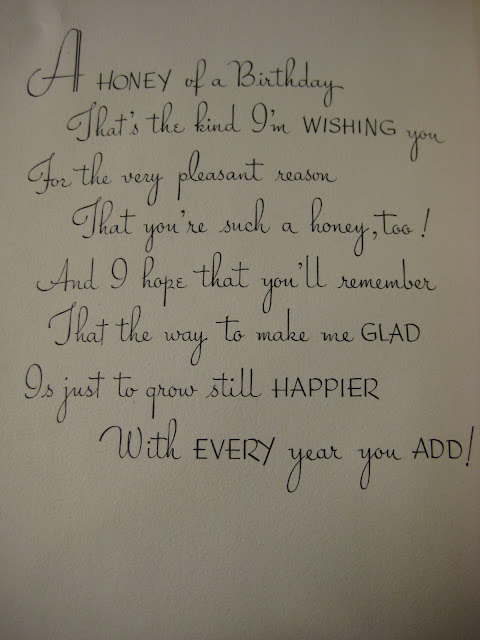 A HONEY of a Birthday
That's the kind I'm WISHING you
For the very pleasant reason
That you're such a honey, too!
And I hope that you'll remember
That the way to make me GLAD
Is just to grow still HAPPIER
With EVERY year you ADD!